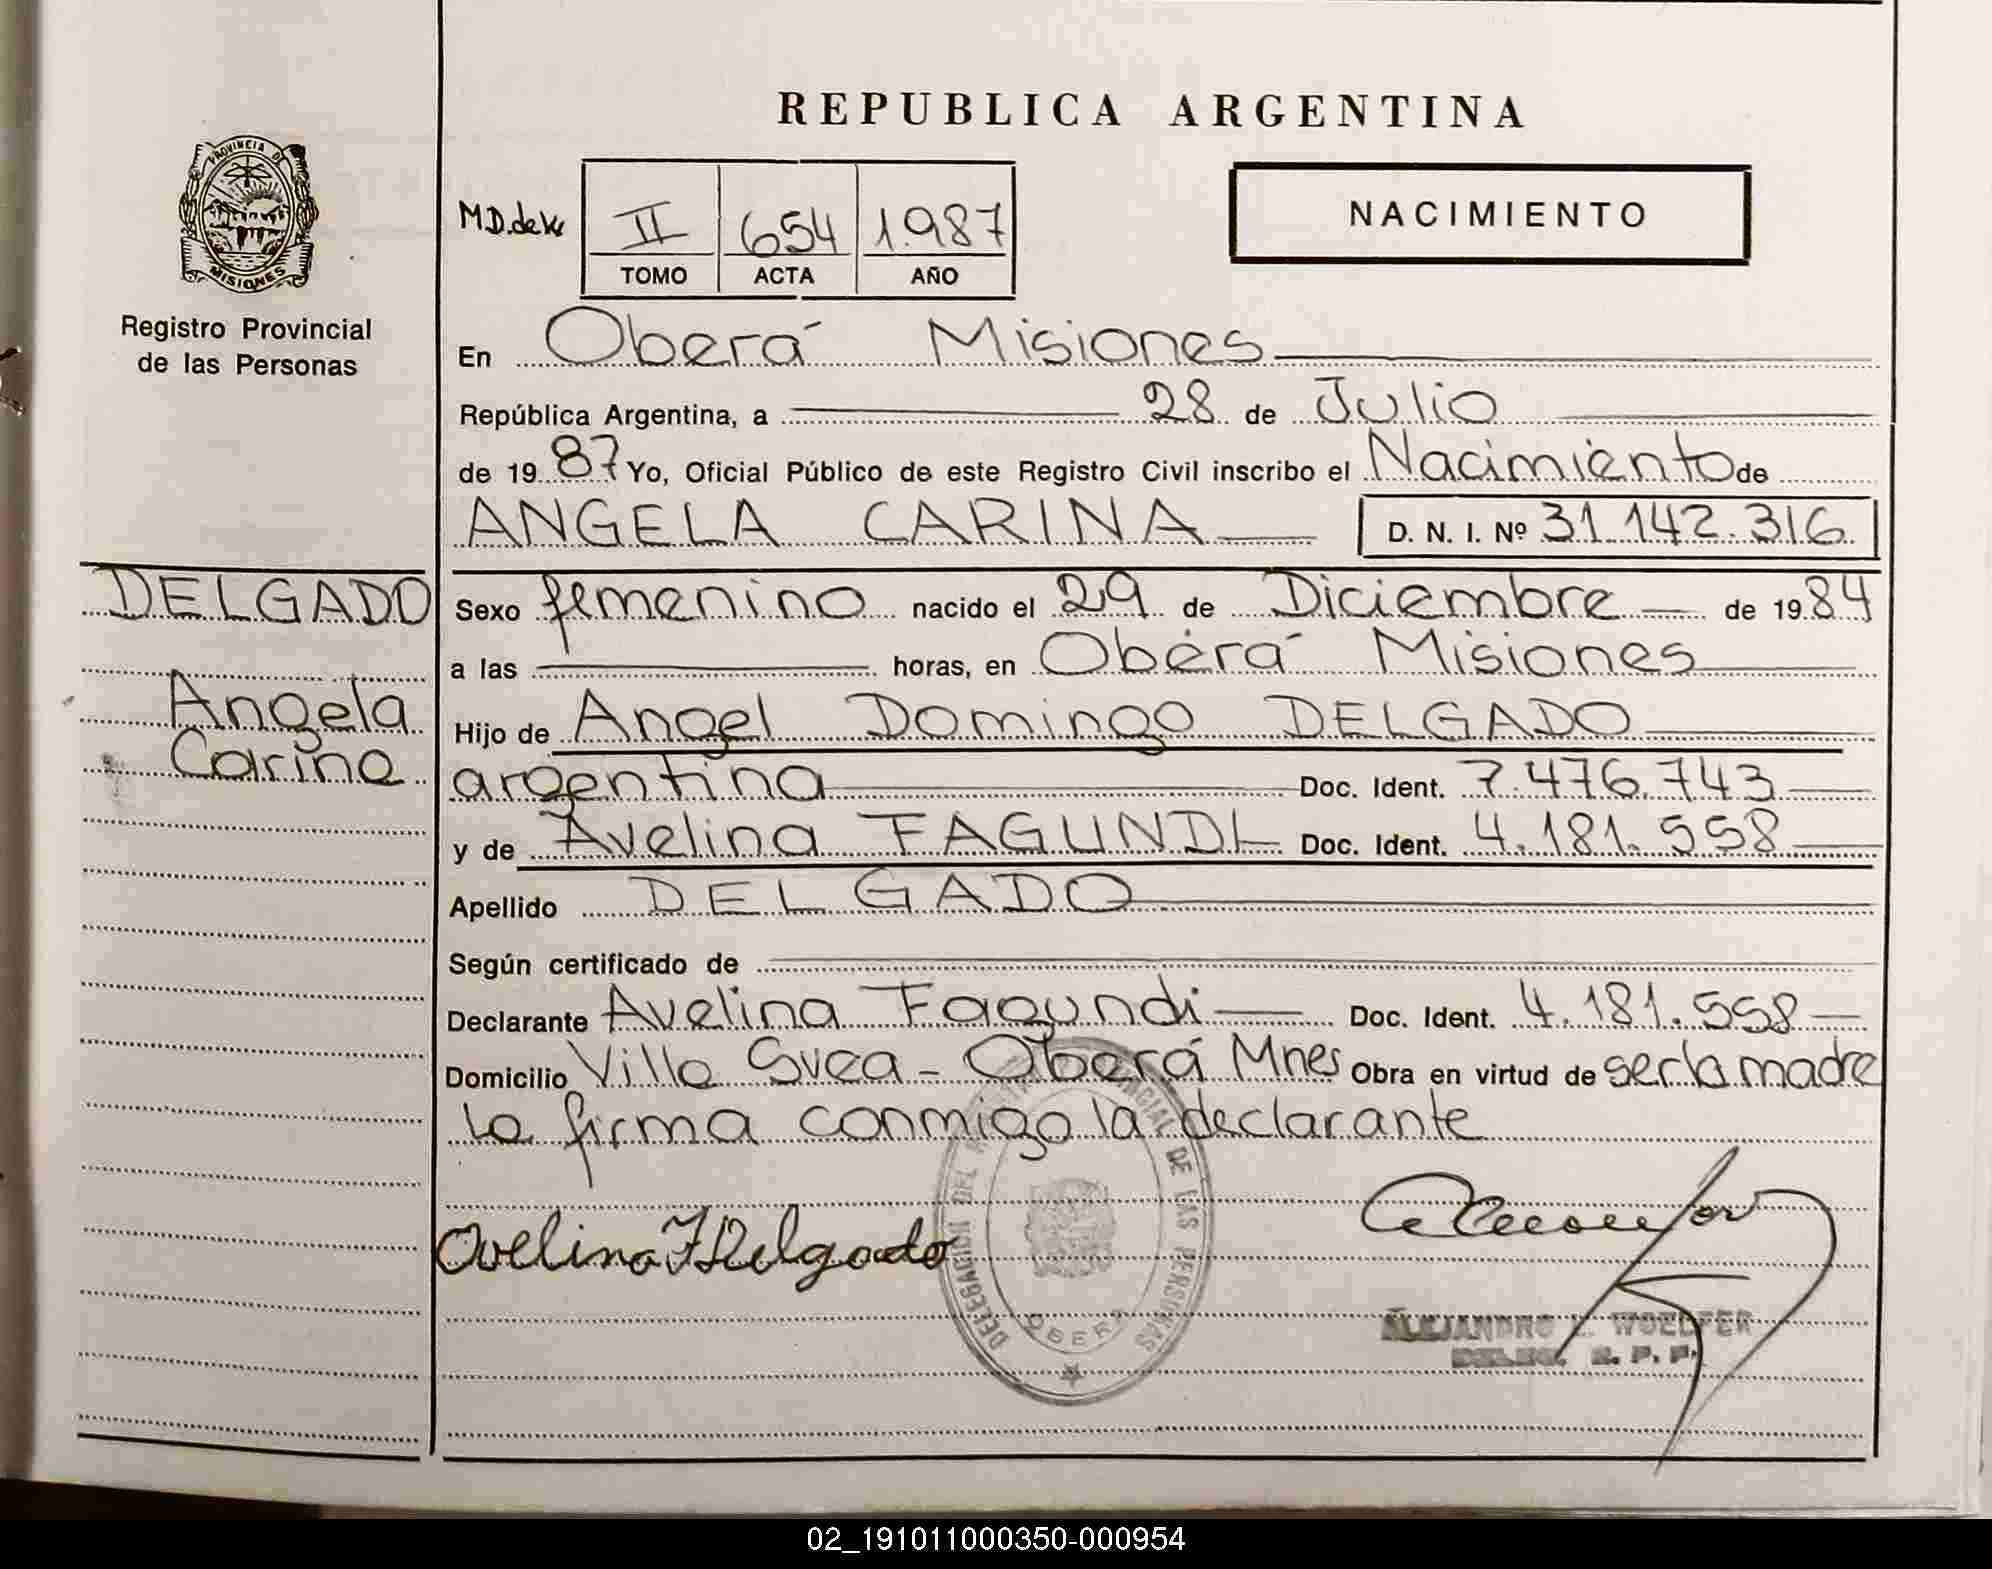 REPUBLICA ARGENTINA
PROVINCIA DE
MISIONES
Registro Provincial
de las Personas
II 654 1.987
TOMO ACTA AÑO
NACIMIENTO
En Oberá Misiones
República Argentina, a 28 de Julio
de 1987 Yo, Oficial Público de este Registro Civil inscribo el Nacimiento de
ANGELA CARINA D. N. I. Nº 31.142.316
DELGADO
Angela
Carina
Sexo femenino nacido el 29 de Diciembre de 1984
a las horas, en Oberá Misiones
Hijo de Angel Domingo DELGADO
argentina Doc. Ident. 7.476.743
y de Avelina FAGUNDI Doc. Ident. 4.181.558
Apellido DELGADO
Según certificado de
Declarante Avelina Fagundi Doc. Ident. 4.181.558
Domicilio Villa Svea - Oberá Mnes Obra en virtud de ser la madre
la firma conmigo la declarante
Avelina F Delgado
DELEGACION DEL REGISTRO PROVINCIAL DE LAS PERSONAS
OBERA
ALEJANDRO L. WOELFER
DELEG. R. P. P.
02_191011000350-000954